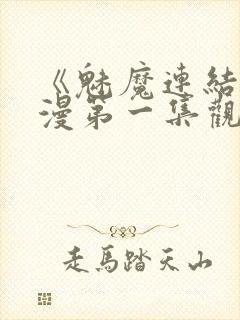 《魅魔連結
漫第一集觀
走馬踏天山